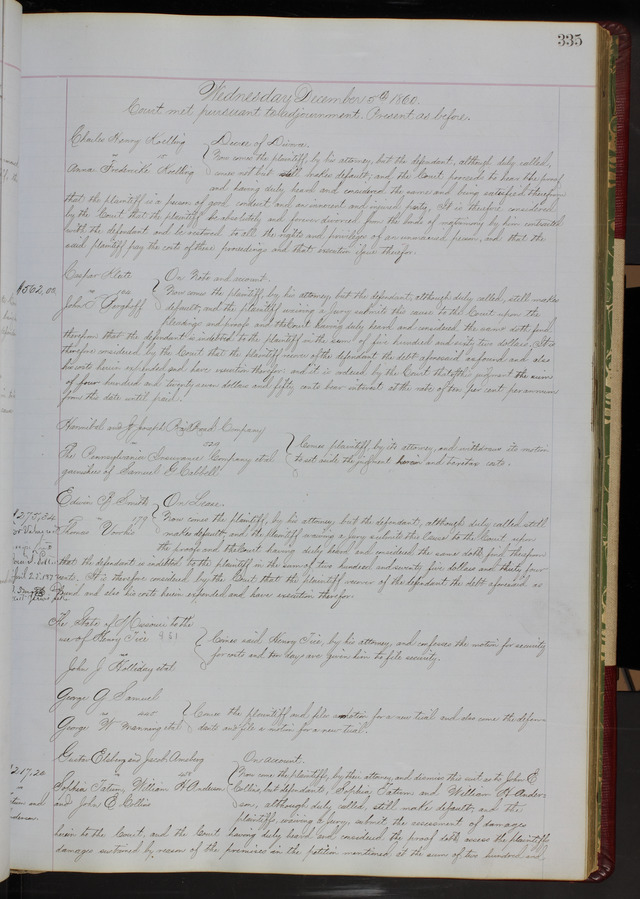 335
Wednesday December 5th 1860.
Court met pursuant to adjournment. Present as before.
Charles Henry Koelling
vs
Anna Frederike Koelling
Decree of Divorce.
Now comes the plaintiff, by his attorney, but the defendant, although duly called,
comes not but still makes default; and the Court proceeds to hear the proof
and having duly heard and considered the same and being satisfied therefrom
that the plaintiff is a person of good conduct and an innocent and injured party, It is therefore considered
by the Court that the plaintiff be absolutely and forever divorced from the bonds of matrimony by him contracted
with the defendant and be restored to all the rights and privileges of an unmarried person, and that the
said plaintiff pay the costs of these proceedings and that execution issue therefor.
$562.00.
Caspar Klate
vs
John
On Note and account.
Now comes the plaintiff, by his attorney, but the defendant, although duly called, still makes
default, and the plaintiff waiving a jury submits this cause to the Court upon the
pleadings and proofs and the Court having duly heard and considered the same doth find
therefrom that the defendant is indebted to the plaintiff in the sum of five hundred and sixty two dollars. It is
therefore considered by the Court that the plaintiff recover of the defendant the debt aforesaid as found and also
his costs herein expended and have execution therefor. and it is ordered by the Court that of the judgment the sum
of four hundred and twenty seven dollars and fifty cents bear interest at the rate of ten per cent per annum
from the date until paid.
Hannibal and St Joseph Rail Road Company
vs
The Pennsylvania Insurance Company et al
garnishee of Samuel G Cabbell
Comes plaintiff, by its attorney, and withdraws its motion
to set aside the judgment herein and to retax costs.
$275.34
Edwin B Smith
vs 779
Thomas
On Lease.
Now comes the plaintiff, by his attorney, but the defendant, although duly called still
makes default, and the plaintiff waiving a jury submits this cause to the Court upon
the proofs and the Court having duly heard and considered the same doth find therefrom
that the defendant is indebted to the plaintiff in the sum of two hundred and seventy five dollars and thirty four
cents. It is therefore considered by the Court that the plaintiff recover of the defendant the debt aforesaid as
found and also his costs herein expended and have execution therefor.
The State of Missouri to the
use of Henry Tice 931
vs
John J Holliday et al
Comes said Henry Tice, by his attorney, and confesses the motion for security
for costs and ten days are given him to file security.
George G Samuel
vs
George W Manning et al
Comes the plaintiff and files motion for a new trial and also come the defen-
dants and file a motion for a new trial.
217.20
Gustav Elsberg and Jacob Amberg
vs
Sophia Tatum, William H Anderson
and John E Collins
On account.
Now come the plaintiffs, by their attorney, and dismiss this suit as to John E
Collins, but defendants, Sophia Tatum and William H Ander-
son, although duly called, still make default; and the
plaintiffs, waiving a jury, submit the assessment of damages
herein to the Court, and the Court having duly heard and considered the proof doth assess the plaintiffs
damages sustained by reason of the premises in the petition mentioned at the sum of two hundred and